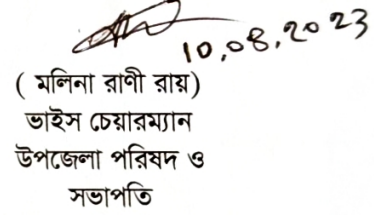 10.08.2023
( মলিনা রাণী রায়)
ভাইস চেয়ারম্যান
উপজেলা পরিষদ ও
সভাপতি